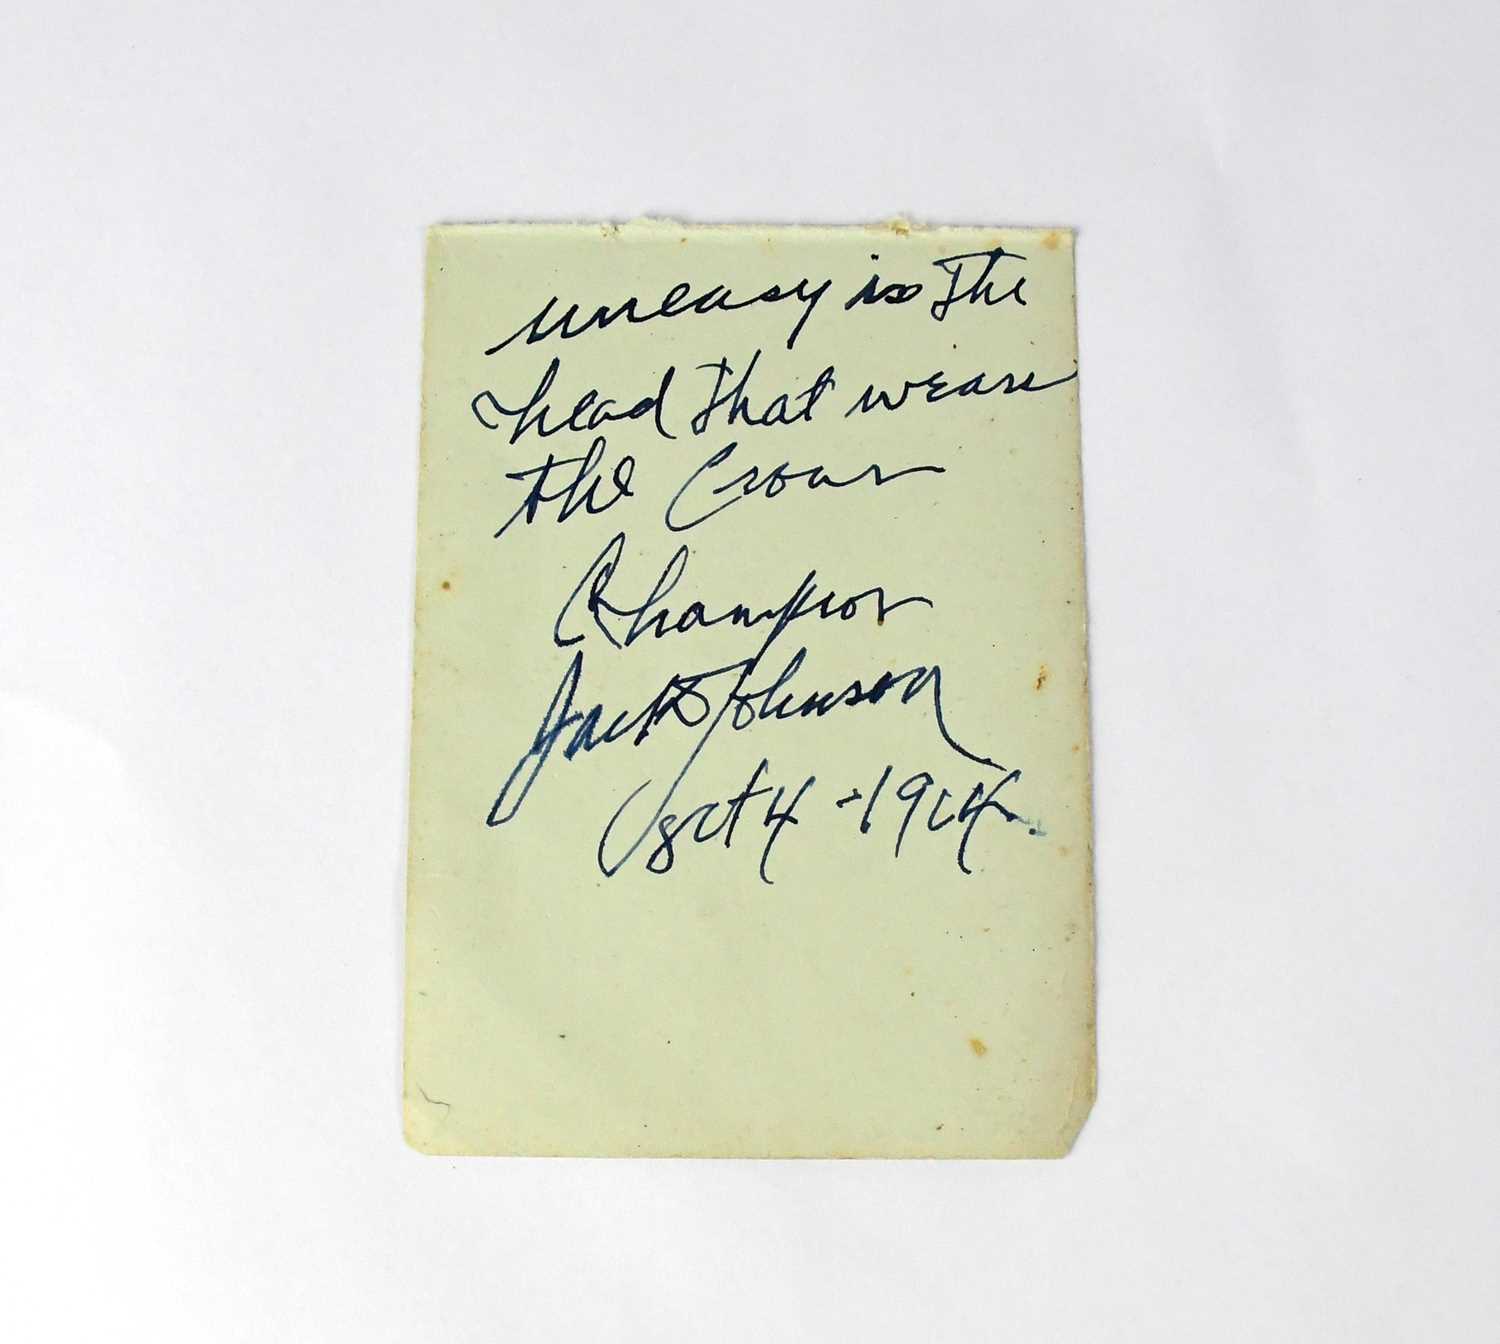 uneasy is the
head that wears
the Crown
Champion
Jack Johnson
Oct 4 - 1914.